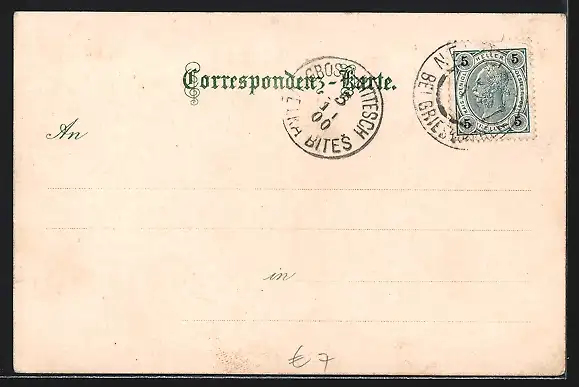 Correspondenz-Karte.
GROSS BITESCH
5
00
VELKÁ BITEŠ
BEI GRIES
5 HELLER 5
5 5
An
in
€ 7